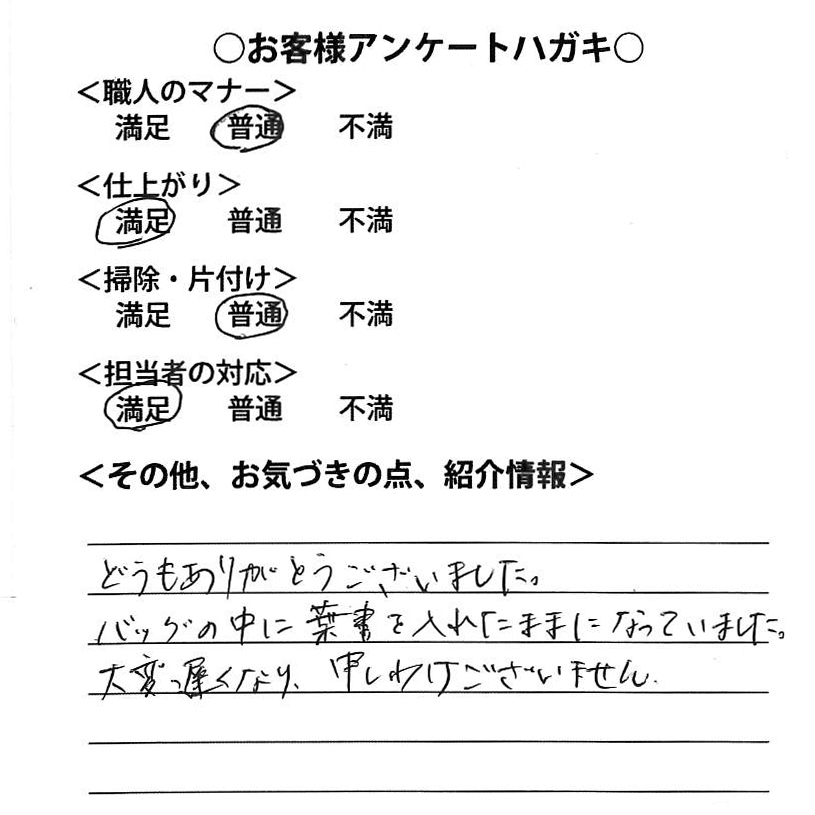 ○お客様アンケートハガキ○
＜職人のマナー＞
満足 普通 不満
＜仕上がり＞
満足 普通 不満
＜掃除・片付け＞
満足 普通 不満
＜担当者の対応＞
満足 普通 不満
＜その他、お気づきの点、紹介情報＞
どうもありがとうございました。
バッグの中に葉書を入れたままになっていました。
大変遅くなり、申しわけございません.